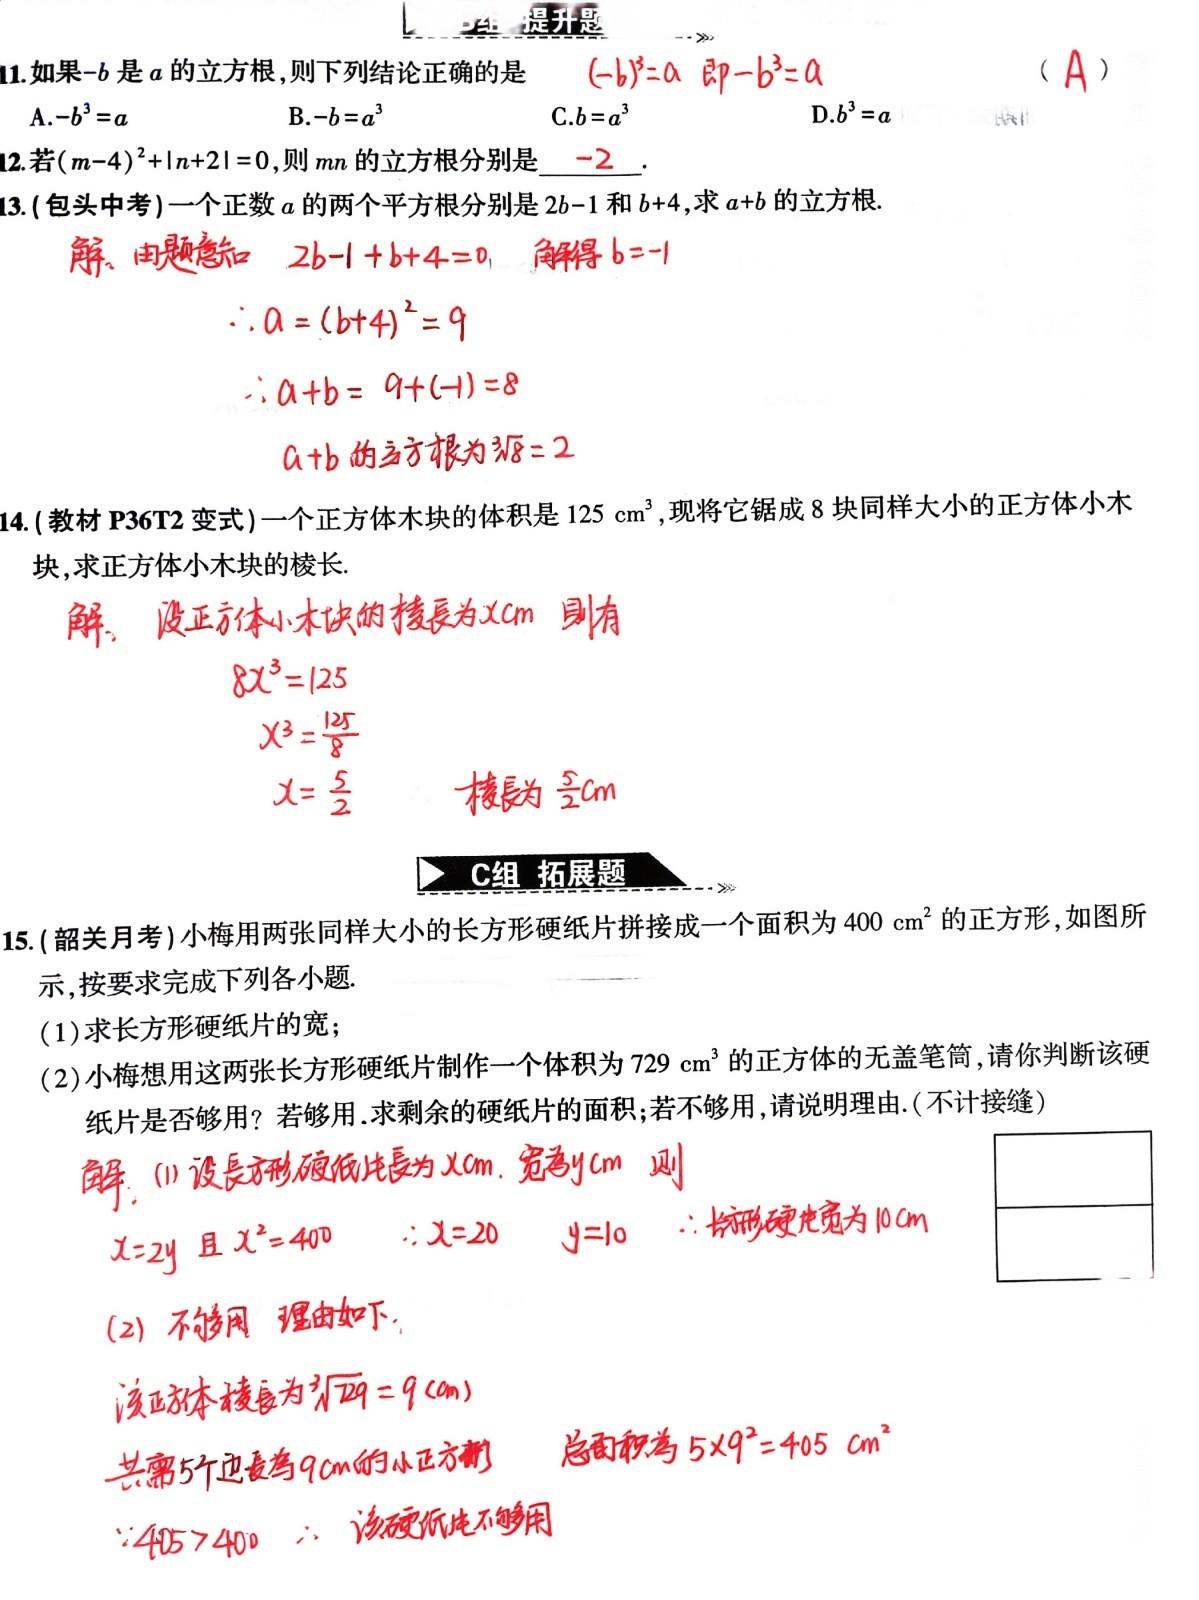 B组 提升题
11.如果-b 是 a 的立方根,则下列结论正确的是 (-b)³=a 即-b³=a ( A )
A.-b³=a B.-b=a³ C.b=a³ D.b³=a
12.若(m-4)²+|n+2|=0,则 mn 的立方根分别是 -2 .
13.(包头中考)一个正数 a 的两个平方根分别是 2b-1 和 b+4,求 a+b 的立方根.
解、由题意知 2b-1+b+4=0, 解得 b=-1
∴a=(b+4)²=9
∴a+b= 9+(-1)=8
a+b 的立方根为³√8=2
14.(教材 P36T2 变式)一个正方体木块的体积是 125 cm³,现将它锯成 8 块同样大小的正方体小木
块,求正方体小木块的棱长.
解、 设正方体小木块的棱長为xcm 则有
8x³=125
x³=125/8
x=5/2 棱長为 5/2cm
C组 拓展题
15.(韶关月考)小梅用两张同样大小的长方形硬纸片拼接成一个面积为 400 cm² 的正方形,如图所
示,按要求完成下列各小题.
(1)求长方形硬纸片的宽;
(2)小梅想用这两张长方形硬纸片制作一个体积为 729 cm³ 的正方体的无盖笔筒,请你判断该硬
纸片是否够用? 若够用.求剩余的硬纸片的面积;若不够用,请说明理由.(不计接缝)
解. (1) 设長方形硬纸片長为 xcm. 宽為ycm 则
x=2y 且 x²=400 ∴x=20 y=10 ∴长方形硬片宽为10cm
(2) 不够用 理由如下.
该正方体棱長为³√729=9(cm)
共需5个边長為9cm的小正方形 总面积為 5×9²=405 cm²
∵405>400 ∴ 该硬纸片不够用